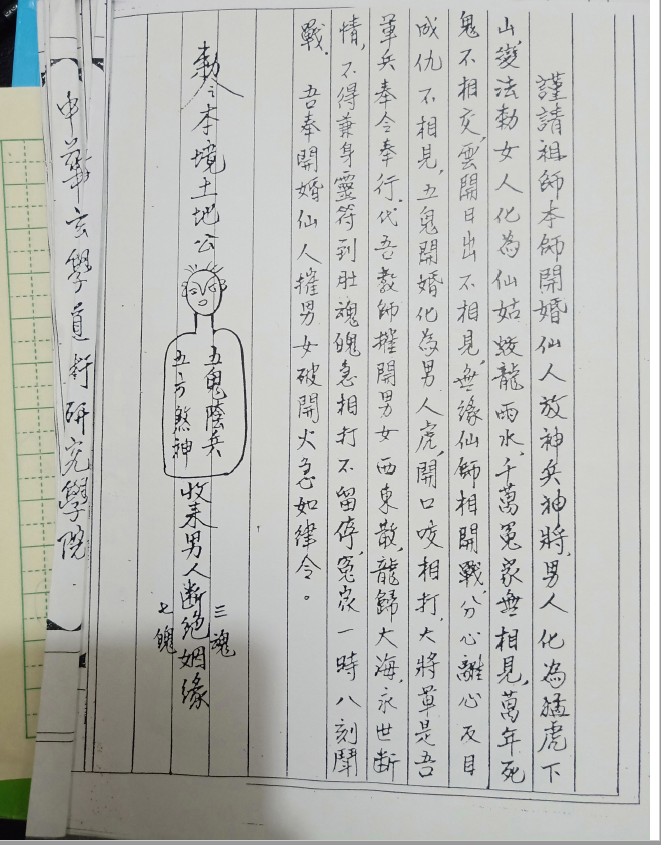 謹請祖師本師開婚仙人放神兵神將,男人化為猛虎下
山,變法勅女人化為仙姑蛟龍雨水,千萬冤家無相見,萬年死
鬼不相交,雲開日出不相見,無緣仙師相開戰,分心離心反目
成仇不相見,五鬼開婚化為男人虎,開口咬相打,大將軍是吾
軍兵奉令奉行.代吾教師摧開男女西東散,龍歸大海,永世斷
情,不得兼身靈符到肚魂魄急相打不留停,冤家一時八刻鬪
戰.
吾奉開婚仙人摧男女破開火急如律令。
勅令本境土地公
五鬼陰兵
五方煞神
收來男人斷絕姻緣
三魂
七魄
中華玄學道術研究學院